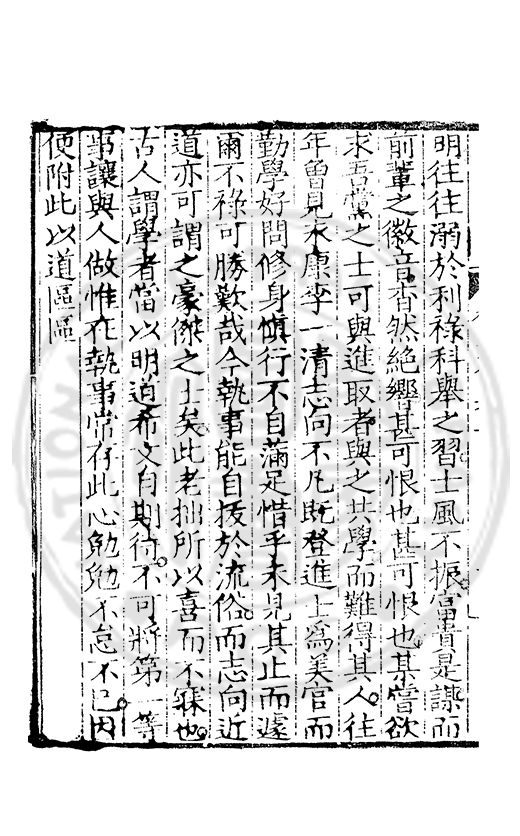 明往往溺於利祿科舉之習士風不振富貴是謀而
前輩之徽音杳然絕響甚可恨也甚可恨也某嘗欲
求吾黨之士可與進取者與之共學而難得其人往
年曾見永康李一清志向不凡既登進士爲美官而
勤學好問修身慎行不自滿足惜乎未見其止而遽
爾不祿可勝歎哉今執事能自拔於流俗而志向近
道亦可謂之豪傑之士矣此老拙所以喜而不寐也
古人謂學者當以明道希文自期待不可將第一等
事讓與人做惟在執事常存此心勉勉不怠不已因
便附此以道區區